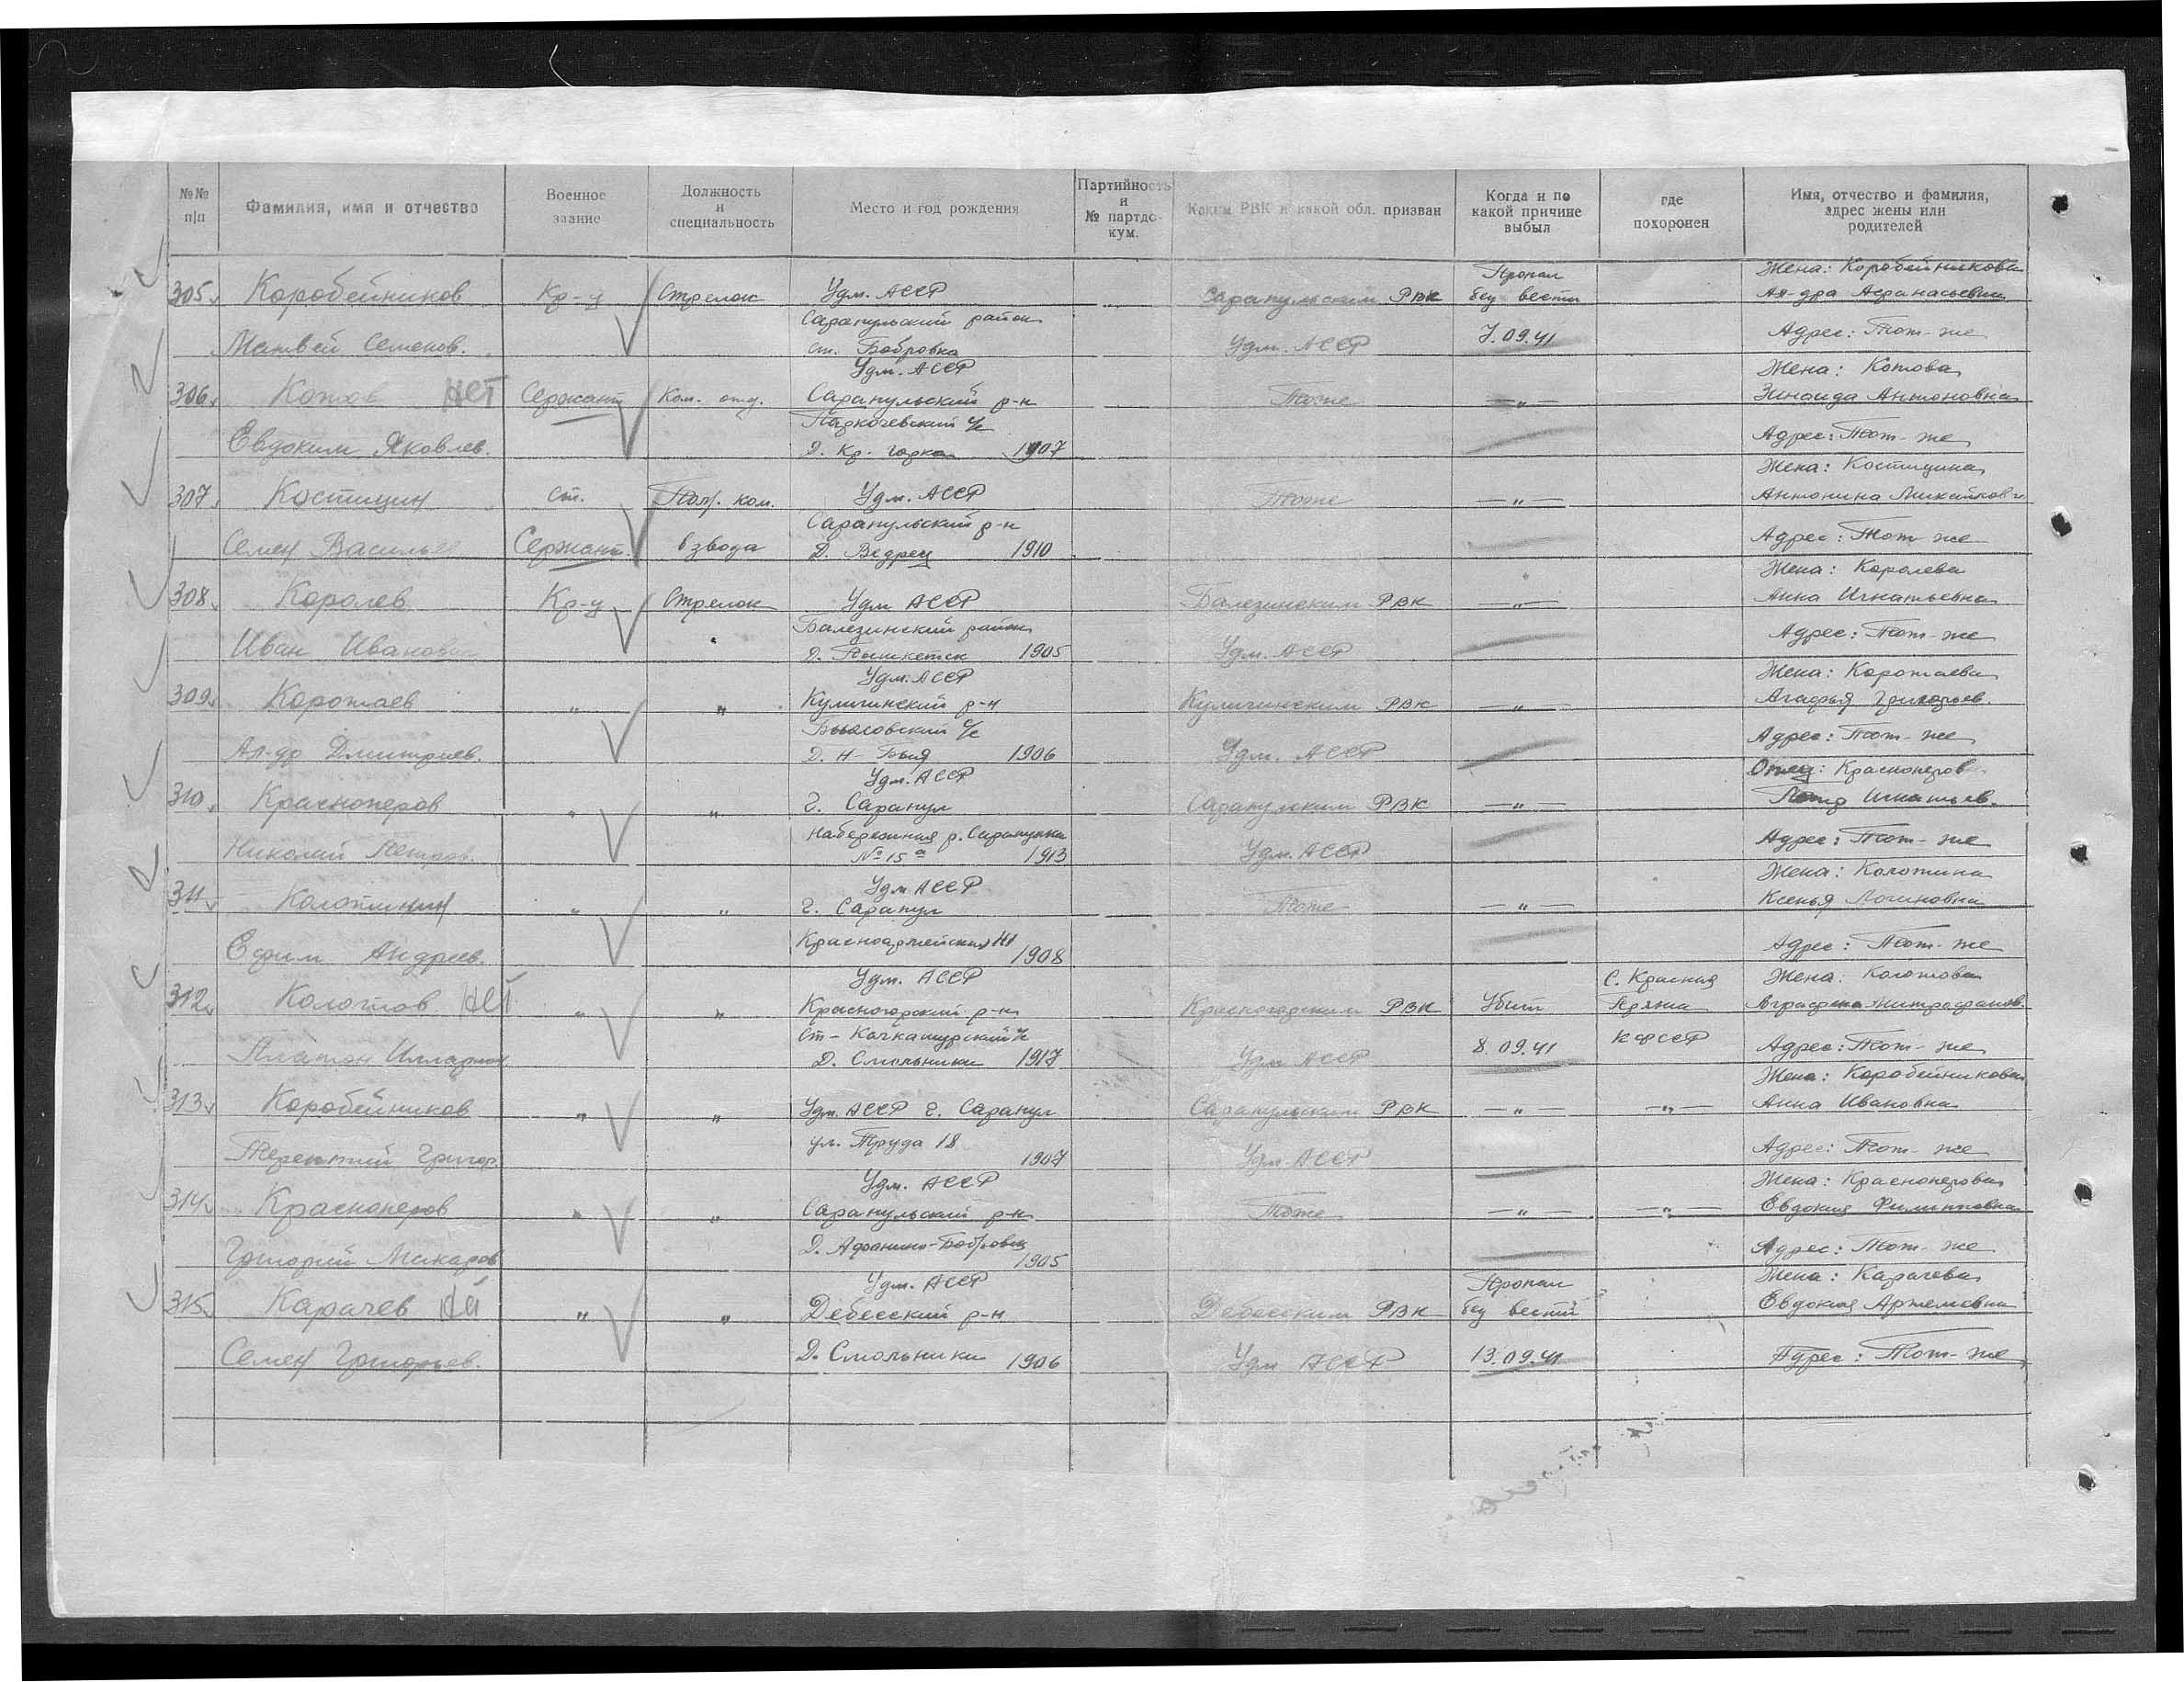 №№ п/п
Фамилия, имя и отчество
Военное звание
Должность и специальность
Место и год рождения
Партийность и № партдокум.
Каким РВК и какой обл. призван
Когда и по какой причине выбыл
где похоронен
Имя, отчество и фамилия, адрес жены или родителей
Пропал Жена: Коробейникова
305 Коробейников Кр-ц Стрелок Удм. АССР Сарапульским РВК без вести Ал-дра Афанасьевна
Сарапульский район
Матвей Семенов. ст. Бобровка Удм. АССР 7.09.41 Адрес: Тот-же
Удм. АССР Жена: Котова
306 Котов нет Сержант Ком. отд. Сарапульский р-н Тоже —"— Зиноида Антоновна
с/с
Евдоким Яковлев. Д. Кр. горка 1907 Адрес: Тот-же
Жена: Костицина
307 Костицин ст. Пом. ком. Удм. АССР Тоже —"— Антонина
Сарапульский р-н
Семен Василье Сержант. взвода Д. 1910 Адрес: Тот же
Жена: Королева
308 Королев Кр-ц Стрелок Удм АССР Балезинским РВК —"— Анна Игнатьевна
Балезинский район
Иван Иванович Д. 1905 Удм. АССР Адрес: Тот-же
Удм. АССР Жена: Коротаева
309 Коротаев " " Кулигинский р-н Кулигинским РВК —"— Агафья Григорьев.
с/с
Ал-др Дмитриев. Д. 1906 Удм. АССР Адрес: Тот-же
Удм. АССР Отец: Красноперов
310 Красноперов " " г. Сарапул Сарапульским РВК —"— Игнатьев.
Набережная р. Сарапулки
Николай Петров. № 15а 1913 Удм. АССР Адрес: Тот-же
Удм АССР Жена: Колотина
311 " " г. Сарапул Тоже —"— Ксенья Логиновна
Красноармейская
Ефим Андреев. 1908 Адрес: Тот-же
Удм. АССР С. Красная Жена: Колотова
312 Колотов нет " " Красногорский р-н Красногорским РВК Убит Пряжа Аграфена Митрофанов.
Ст-Качкашурский с/с
Платон Илларион. Д. Смольники 1917 Удм АССР 8.09.41 КФССР Адрес: Тот-же
Жена: Коробейникова
313 Коробейников " " Удм. АССР г. Сарапул Сарапульским РВК —"— —"— Анна Ивановна
ул. Труда 18
Терентий Григор. 1907 Удм. АССР Адрес: Тот-же
Удм. АССР Жена: Красноперова
314 Красноперов " " Сарапульский р-н Тоже —"— —"— Евдокия Филипповна
Д. Афонино-Бобровка
Григорий Макаров 1905 Адрес: Тот-же
Удм. АССР Пропал Жена: Карачева
315 Карачев " " Дебесский р-н Дебесским РВК без вести Евдокия Артемевна
Семен Григорьев. Д. Смольники 1906 Удм АССР 13.09.41 Адрес: Тот-же